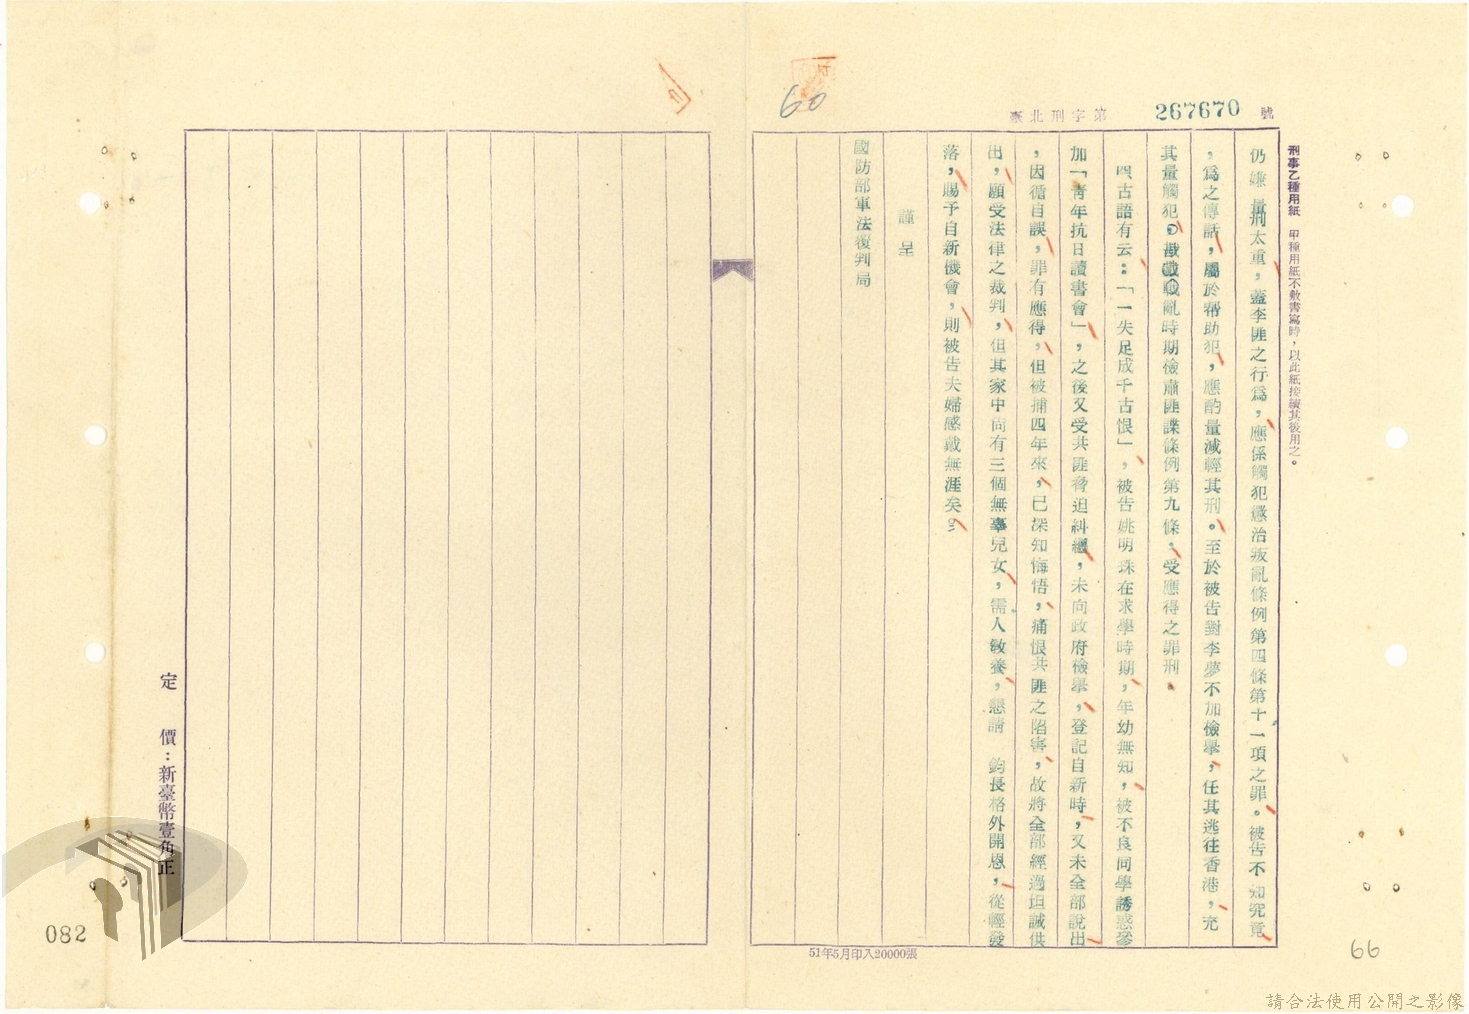 臺北刑字第 267670 號
60
刑事乙種用紙 甲種用紙不敷書寫時，以此紙接續其後用之。
仍嫌量刑太重，蓋李匪之行為，應係觸犯懲治叛亂條例第四條第十一項之罪。被告不知究竟
，為之傳話，屬於幫助犯，應酌量減輕其刑。至於被告對李夢不加檢舉，任其逃往香港，充
其量觸犯戡亂時期檢肅匪諜條例第九條。受應得之罪刑。
四古語有云：「一失足成千古恨」，被告姚明珠在求學時期，年幼無知，被不良同學誘惑參
加「青年抗日讀書會」，之後又受共匪脅迫糾纏，未向政府檢舉，登記自新時，又未全部說出
，因循自誤，罪有應得，但被捕四年來，已深知悔悟，痛恨共匪之陷害，故將全部經過坦誠供
出，願受法律之裁判，但其家中尚有三個無辜兒女，需人教養，懇請 鈞長格外開恩，從輕發
落，賜予自新機會，則被告夫婦感戴無涯矣。
謹呈
國防部軍法覆判局
51年5月印入20000張
定 價：新臺幣壹角正
082
66
請合法使用公開之影像